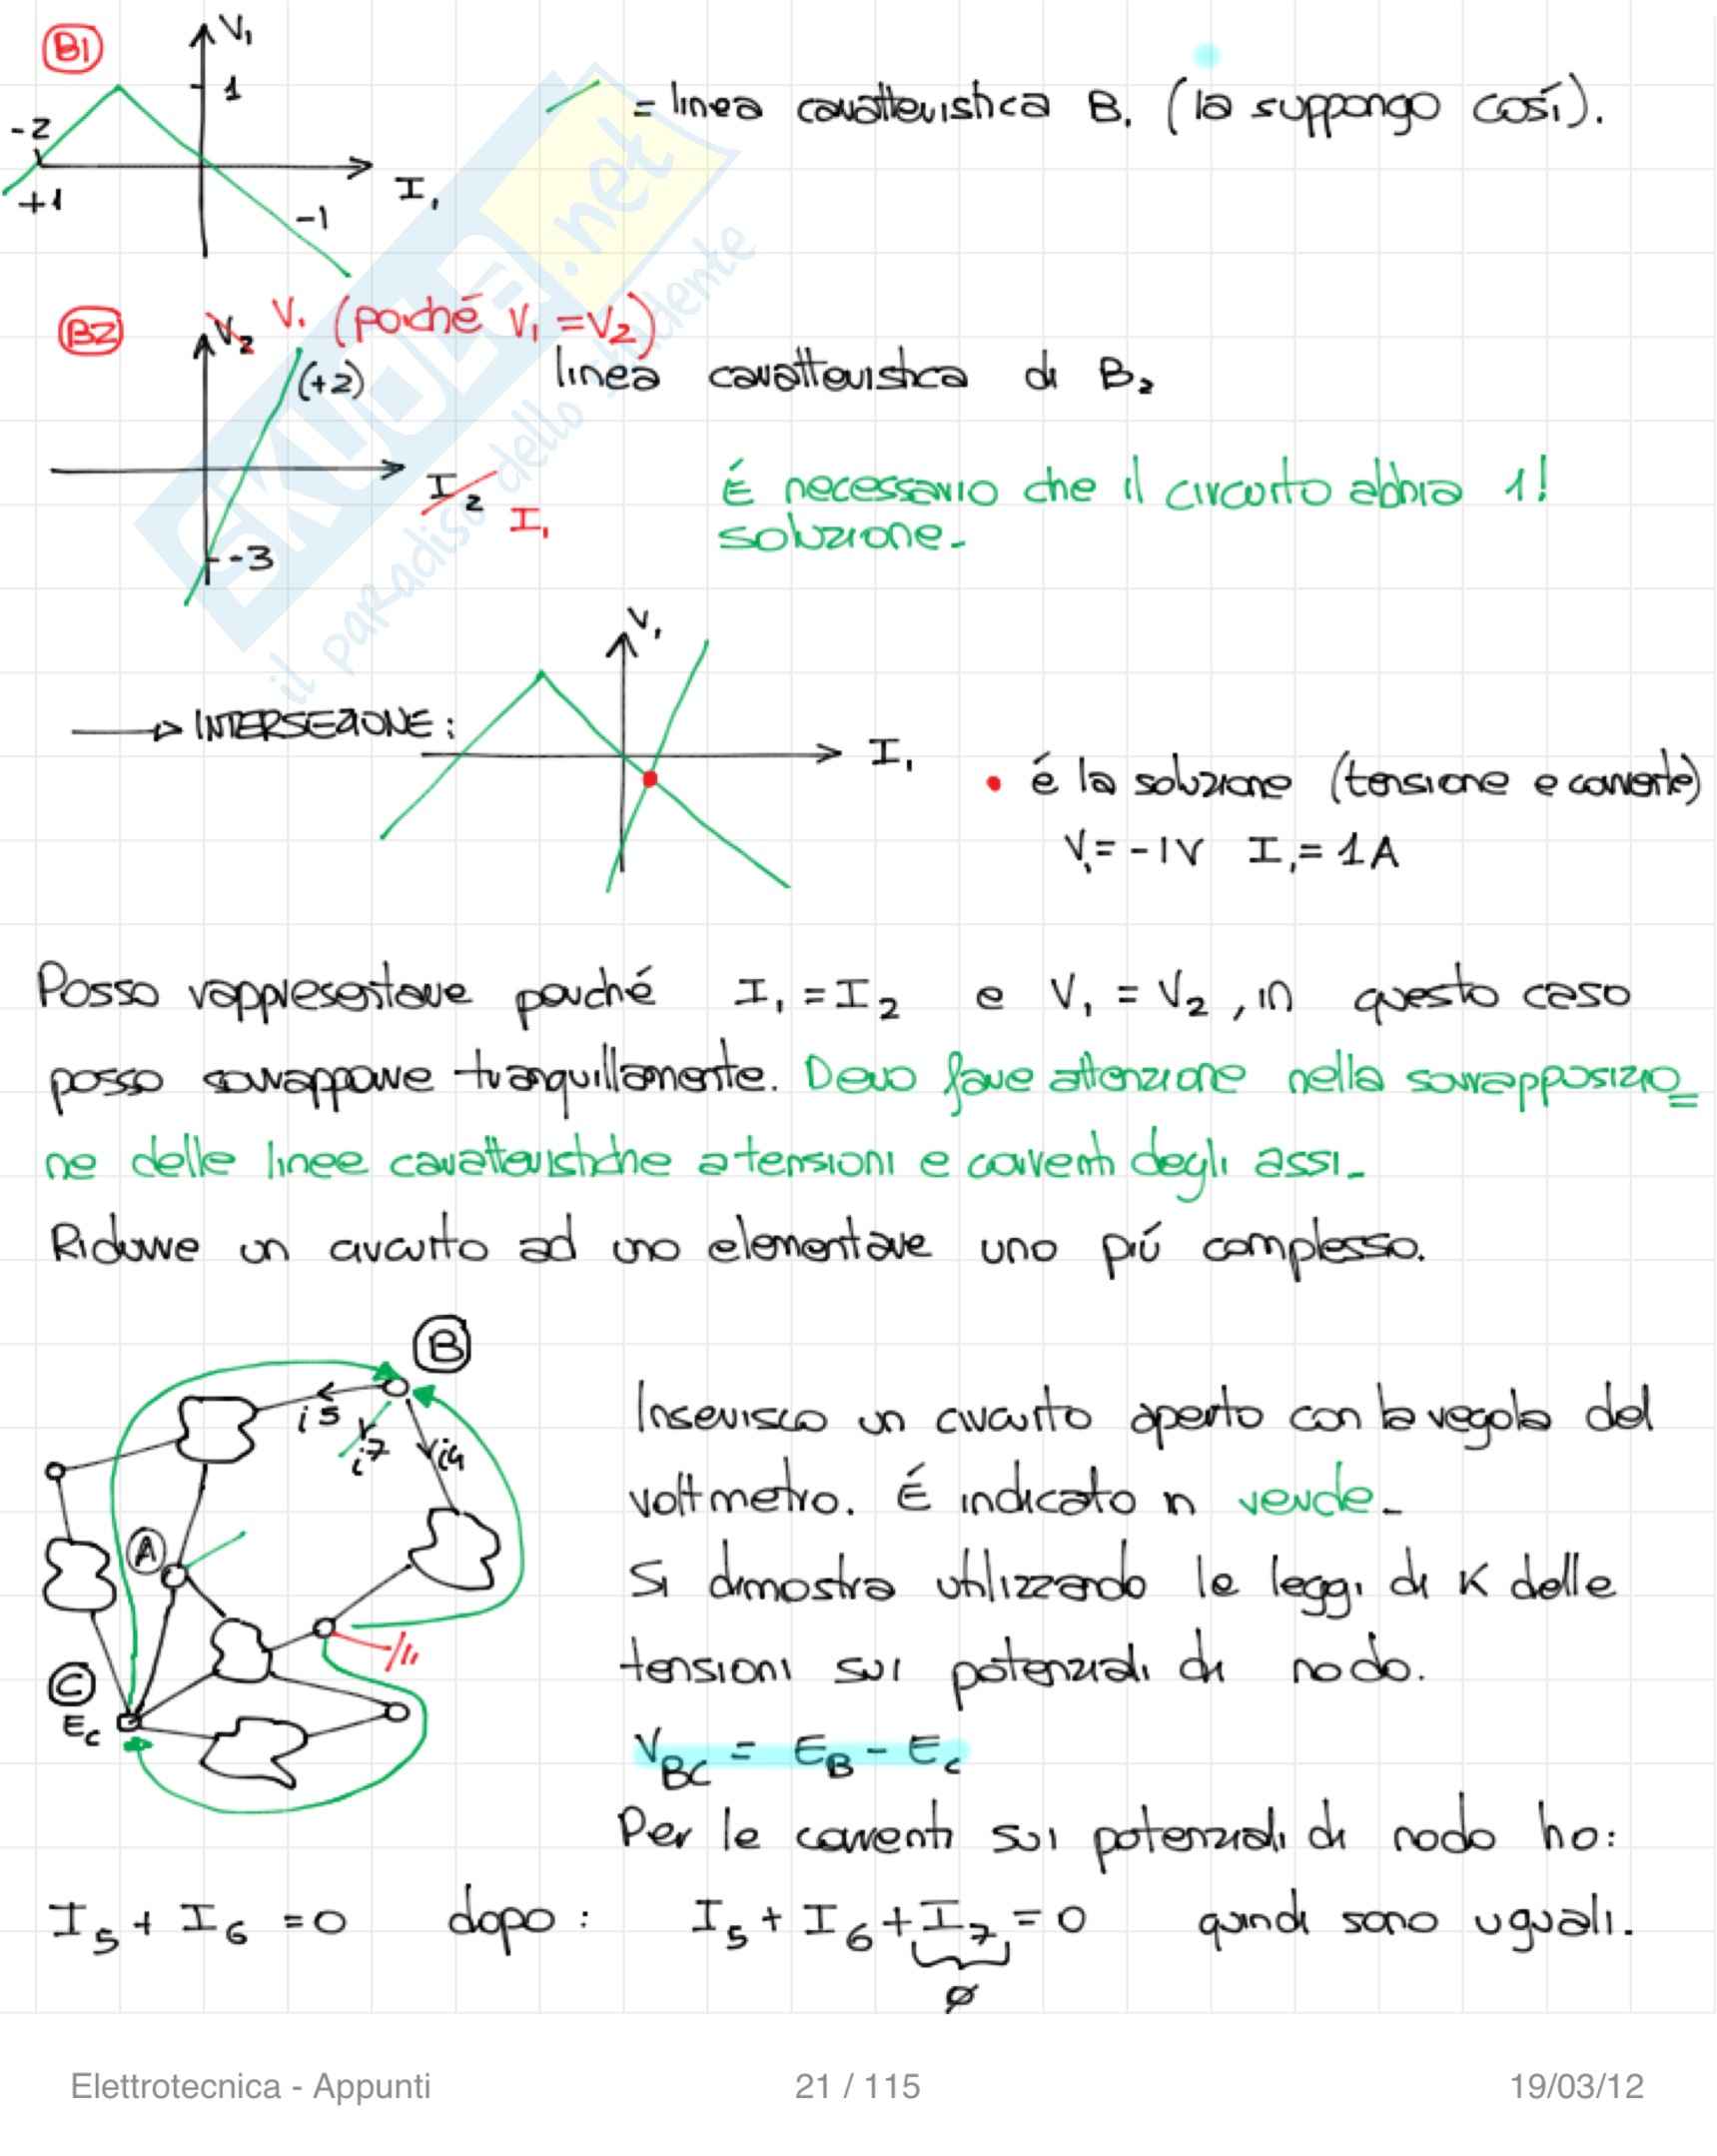 B1
V₁
1
-2
= linea caratteristica B₁ (la suppongo così).
+1
-1
I₁
B2
V₂ V₁ (poiché V₁ = V₂)
(+2)
linea caratteristica di B₂
I₂
I₁
-3
É necessario che il circuito abbia 1!
soluzione.
SKUOLA.net
il paradiso dello studente
V₁
→ INTERSEZIONE:
I₁
• é la soluzione (tensione e corrente)
V₁ = -1V I₁ = 1A
Posso rappresentare perché I₁ = I₂ e V₁ = V₂, in questo caso
posso sovrapporre tranquillamente. Devo fare attenzione nella sovrapposizio=
ne delle linee caratteristiche a tensioni e correnti degli assi.
Ridurre un circuito ad uno elementare uno piú complesso.
B
i5
i7
i4
A
C
Ec
Inserisco un circuito aperto con la regola del
voltmetro. É indicato in verde.
Si dimostra utilizzando le leggi di K delle
tensioni sui potenziali di nodo.
V_BC = E_B - E_c
Per le correnti sui potenziali di nodo ho:
I₅ + I₆ = 0 dopo: I₅ + I₆ + I₇ = 0 quindi sono uguali.
ø
Elettrotecnica - Appunti
21 / 115
19/03/12